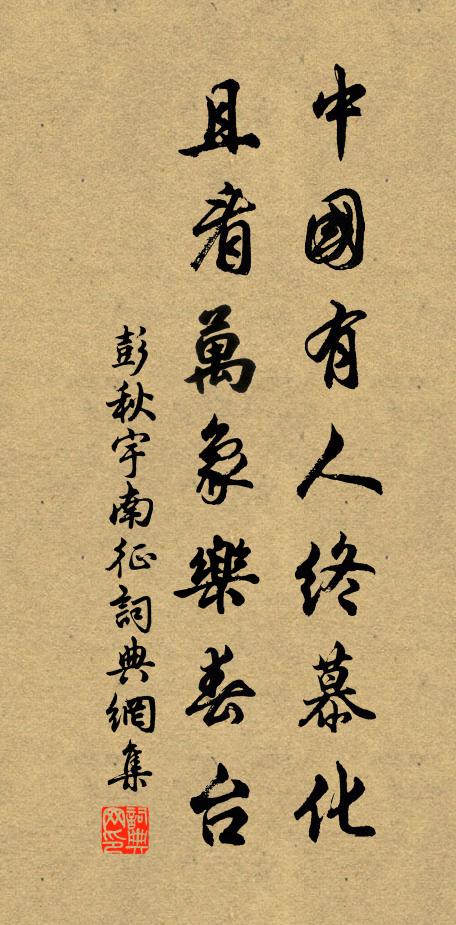 中國有人終慕化
且看萬象樂春台
彭秋宇南征詞典網集
詞典網印